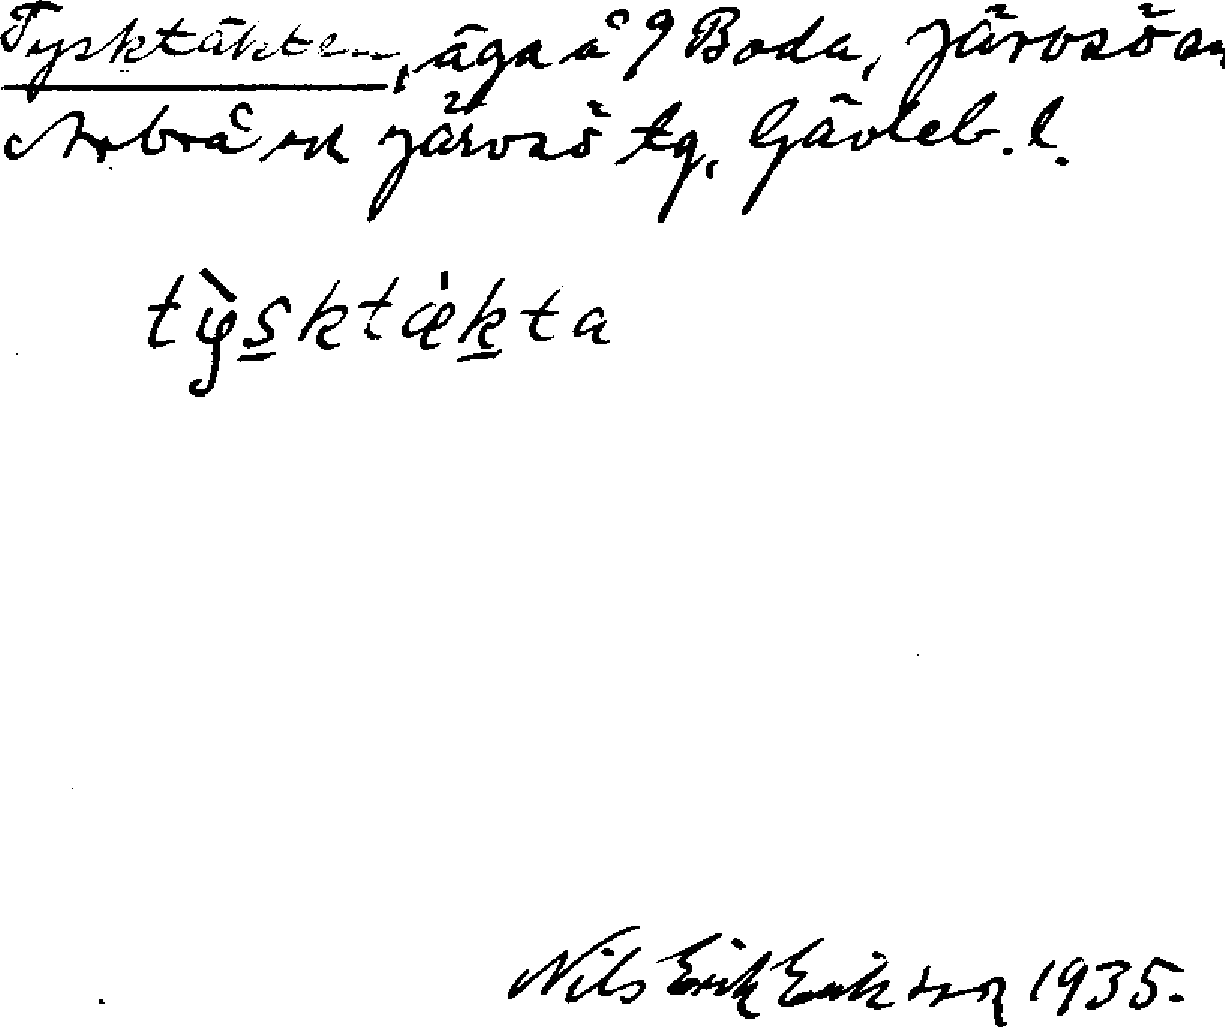 Tysktäkten, äga å 9 Boda, Järvsö sn
Arbrå och Järvsö tg, Gävleb. l.
tỳsktǽkta
Nils Erik Eriksson 1935.